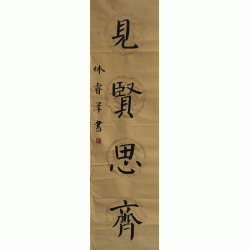 見賢思齊
林睿澤書